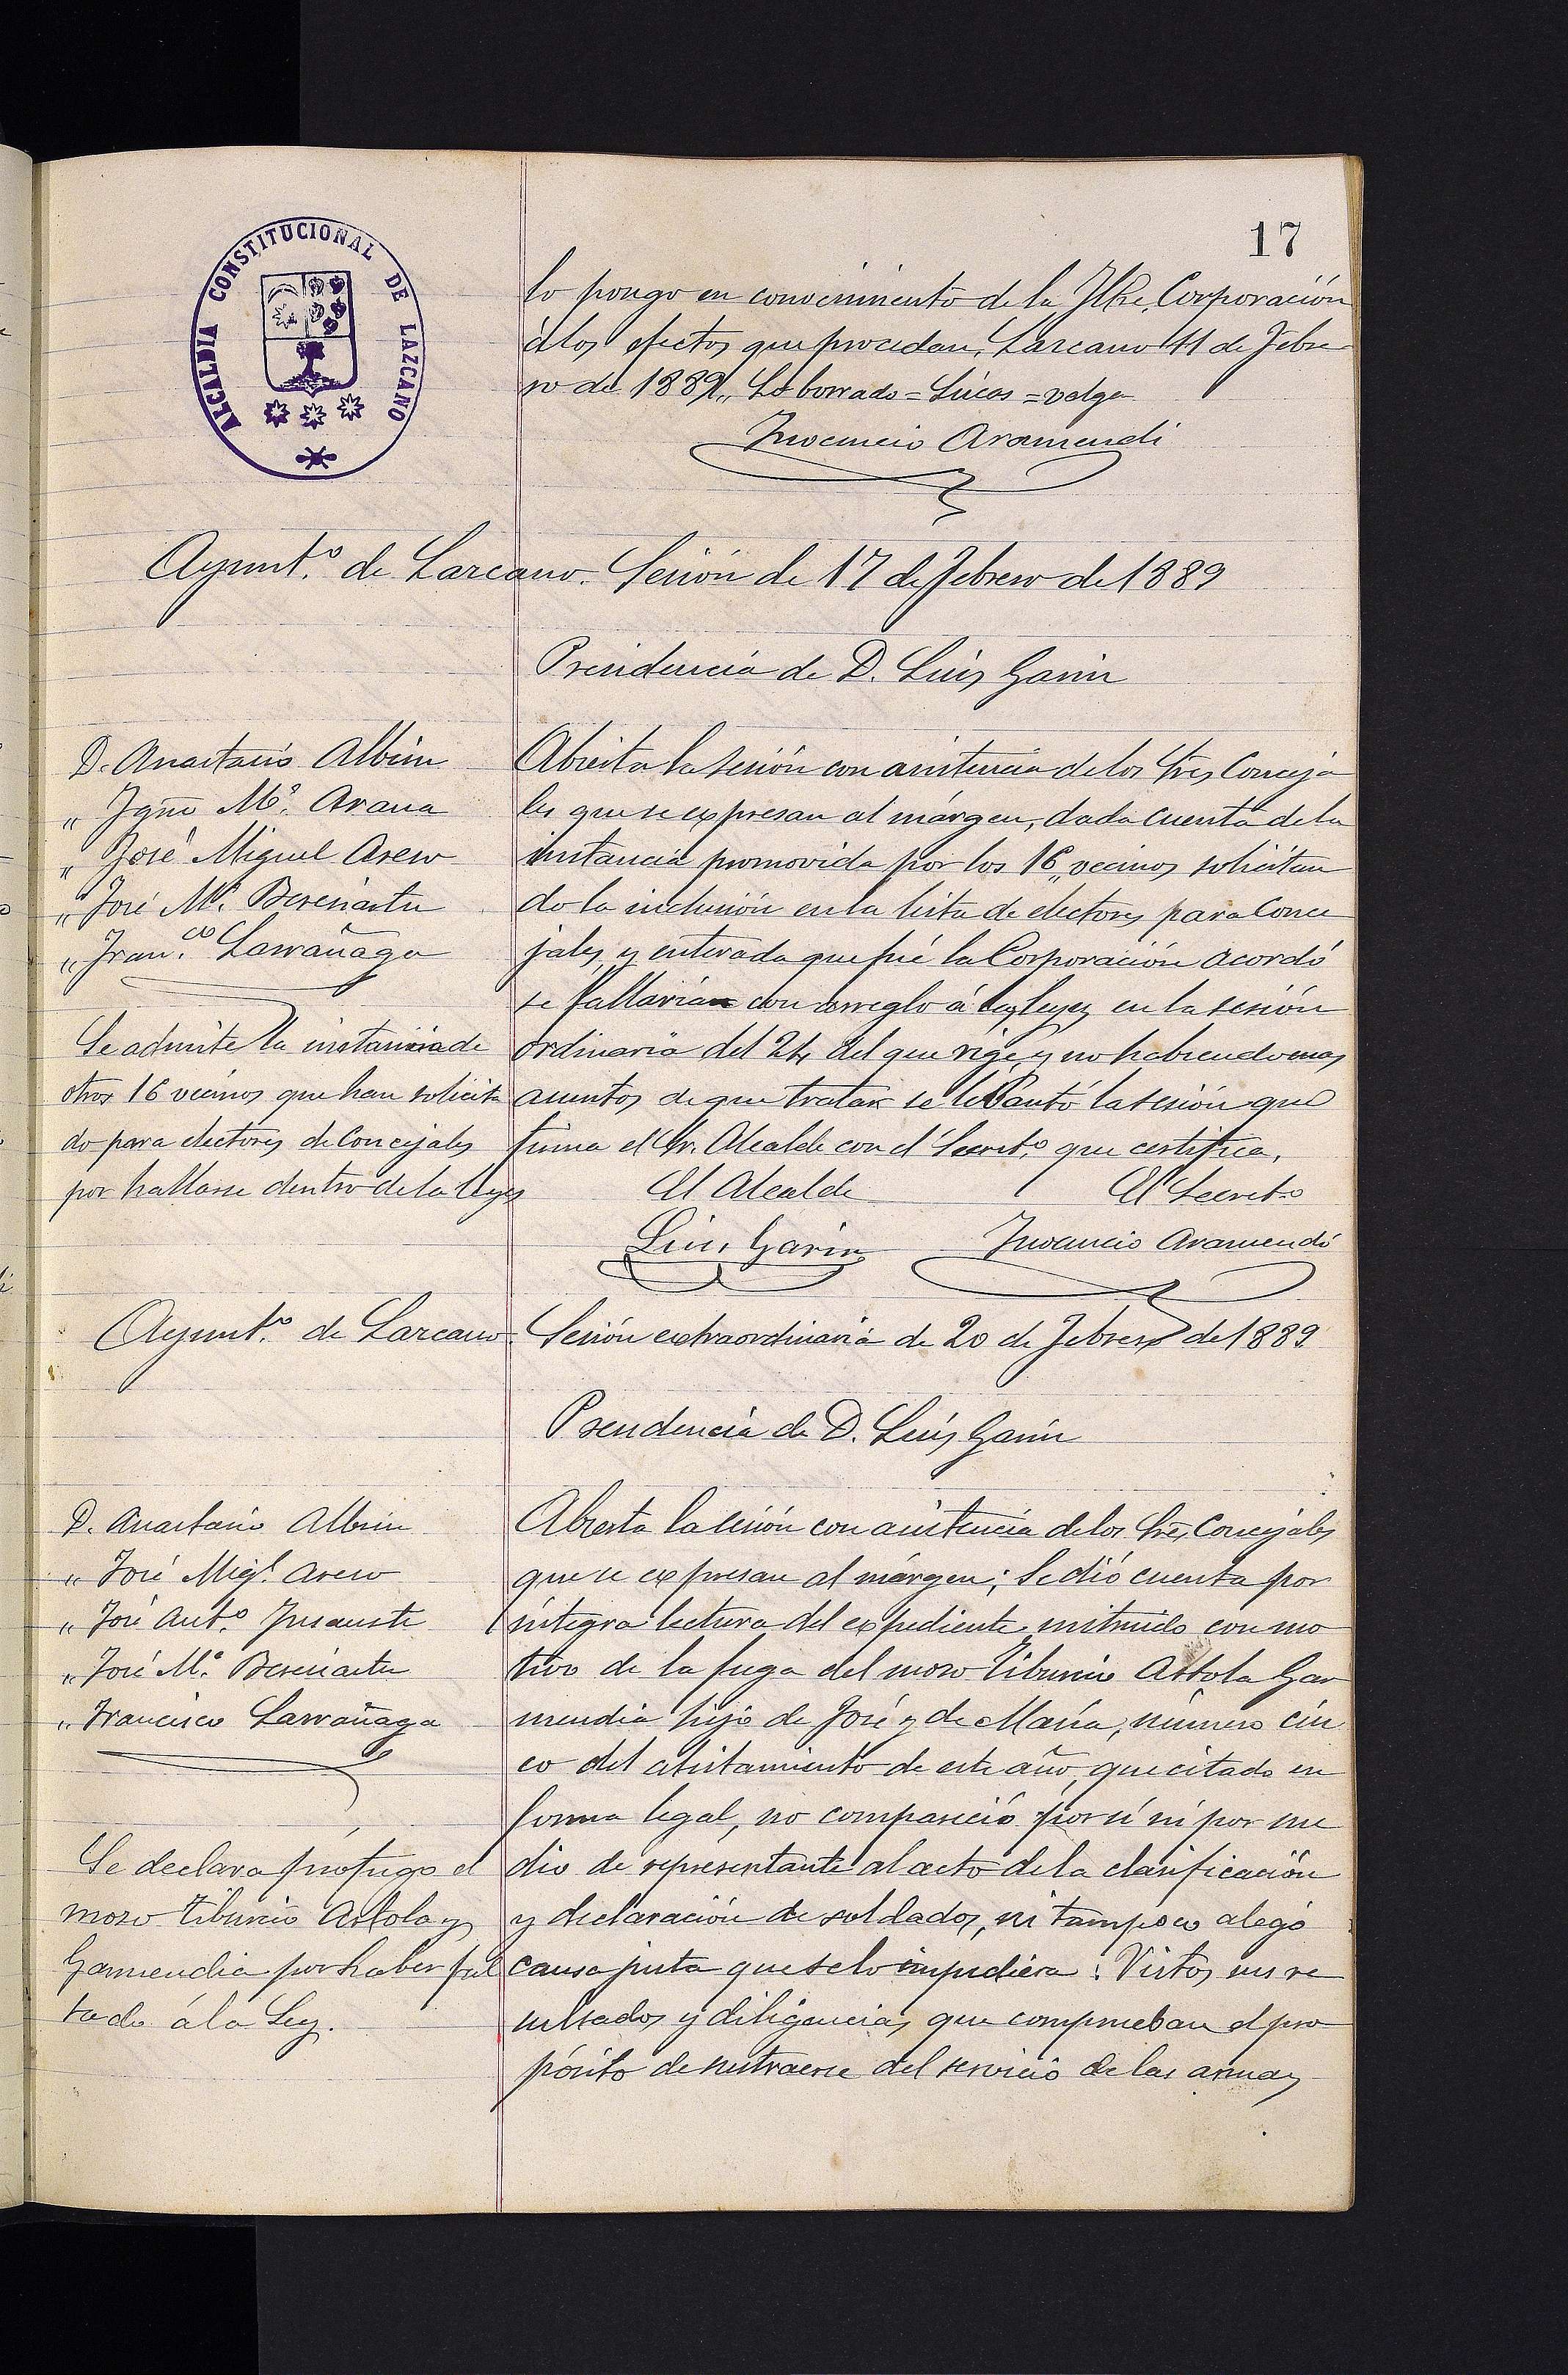 17
ALCALDIA CONSTITUCIONAL DE LAZCANO
lo pongo en conocimiento de la Iltre. Corporación
á los efectos que procedan. Lazcano 11 de Febre
ro de 1889,, Lo borrado = Lúcas = valga
Inocencio Aramendi
Ayunt.º de Lazcano. Sesión de 17 de Febrero de 1889
Presidencia de D. Luis Garin
D. Anastasio Albisu
" Igno Mª. Arana
" José Miguel Aseso
" José Mª. Beresiartu
" Fran.co Larrañaga
Se admite la instancia de
otros 16 vecinos que han solicita
do para electores de Concejales
por hallarse dentro de la ley
Abierta la sesión con asistencia de los Sres Conceja
les que se expresan al márgen, dada cuenta de la
instancia promovida por los 16,, vecinos solicitan
do la inclusión en la lista de electores para Conce
jales, y enterada que fué la Corporación acordó
se fallaria con arreglo á las leyes en la sesión
ordinaria del 24 del que rige, y no habiendo mas
asuntos de que tratar se levantó la sesión que
firma el Sr. Alcalde con el Secret.º que certifica.
El Alcalde El Secret.º
Luis Garin Inocencio Aramendi
Ayunt.º de Lazcano. Sesión extraordinaria de 20 de Febrero de 1889.
Presidencia de D. Luis Garin
D. Anastasio Albisu
" José Migl. Aseso
" José Ant.º Insausti
" José Mª. Beresiartu
" Francisco Larrañaga
Se declara prófugo el
mozo Tiburcio Astola y
Garmendia por haber fal
tado á la Ley.
Abierta la sesión con asistencia de los Sres Concejales
que se expresan al márgen; Se dió cuenta por
íntegra lectura del expediente instruido con mo
tivo de la fuga del mozo Tiburcio Astola Gar
mendia hijo de José y de María, número cin
co del alistamiento de este año, que citado en
forma legal, no compareció por sí ni por me
dio de representante al acto de la clasificación
y declaración de soldados, ni tampoco alegó
causa justa que se lo impidiera: Vistos sus re
sultados y diligencias que comprueban el pro
pósito de sustraerse del servicio de las armas